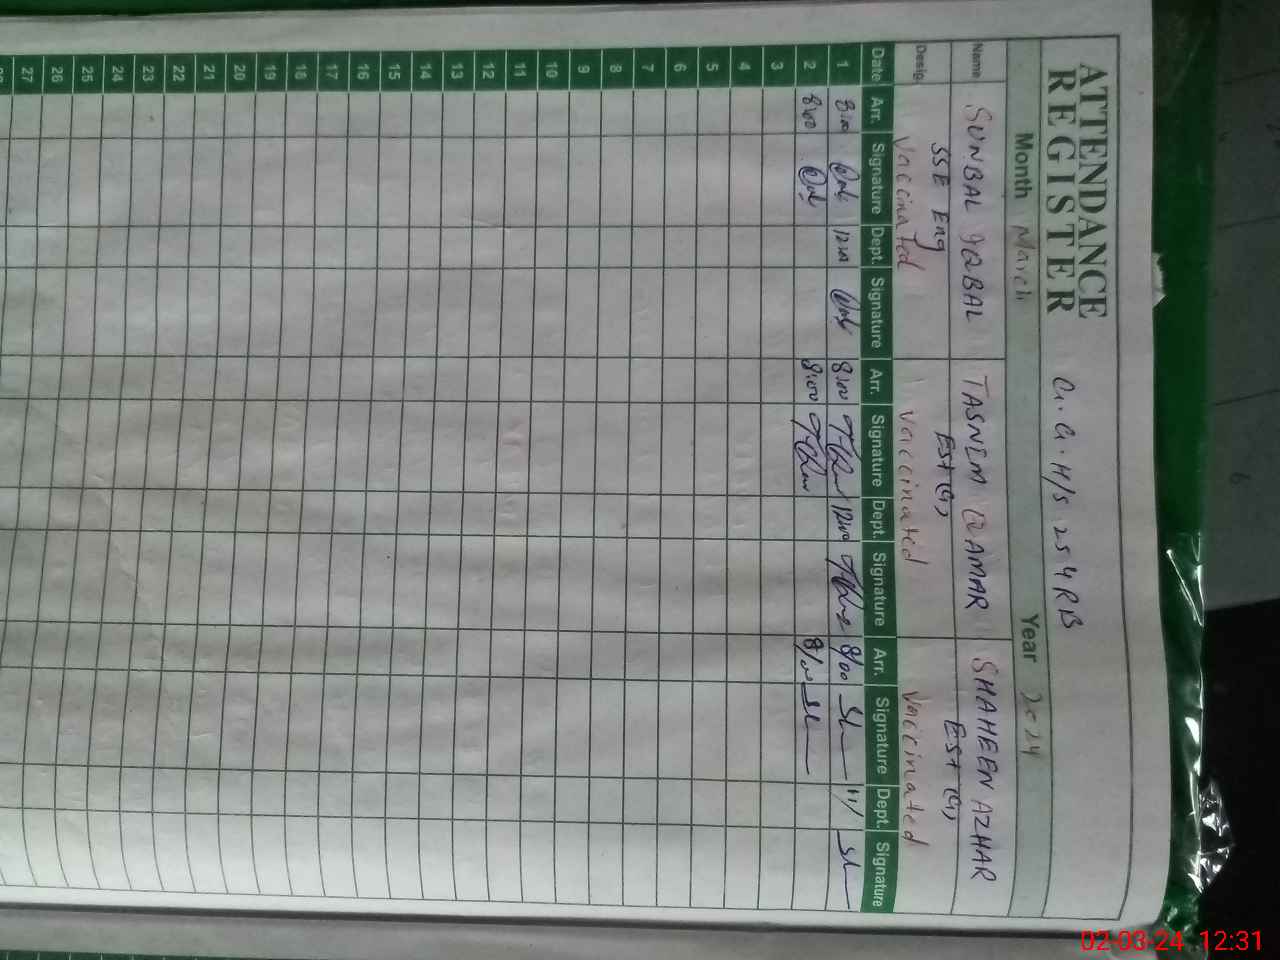 ATTENDANCE
REGISTER G.G.H/S 254 RB
Month March Year 2024
Name SUNBAL IQBAL TASNIM QAMAR SHAHEEN AZHAR
SSE Eng EST (G) EST (G)
Desig. Vaccinated Vaccinated Vaccinated
Date Arr. Signature Dept. Signature Arr. Signature Dept. Signature Arr. Signature Dept. Signature
1 8:00 8:00 12:00 8/00
2 8:00 8:00 8/00
3
4
5
6
7
8
9
10
11
12
13
14
15
16
17
18
19
20
21
22
23
24
25
26
27
02-03-24 12:31